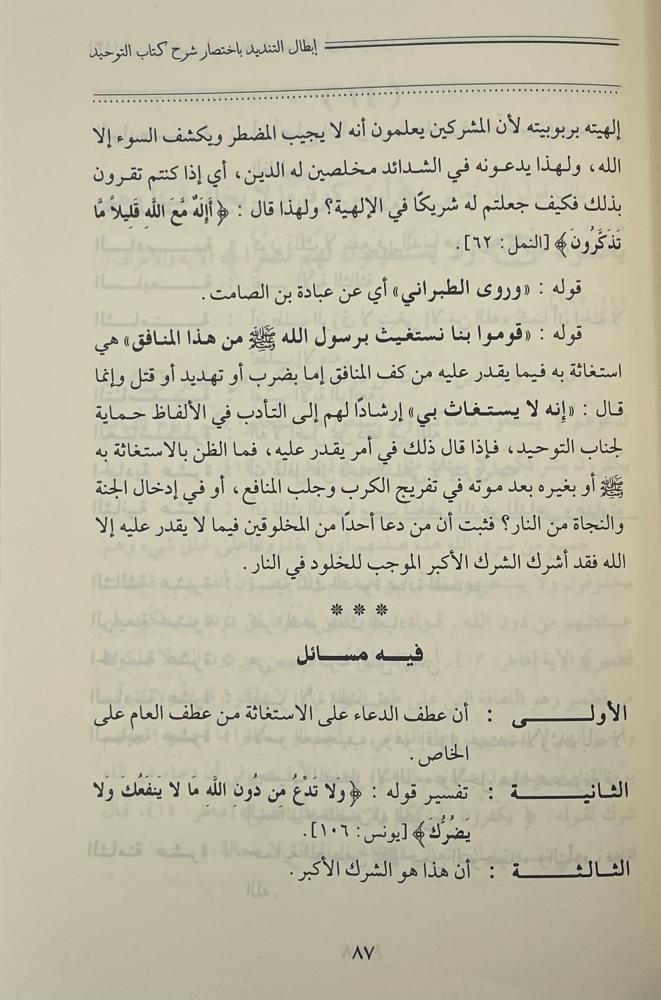 إبطال التنديد باختصار شرح كتاب التوحيد
إلهيته بربوبيته لأن المشركين يعلمون أنه لا يجيب المضطر ويكشف السوء إلا
الله، ولهذا يدعونه في الشدائد مخلصين له الدين، أي إذا كنتم تقرون
بذلك فكيف جعلتم له شريكًا في الإلهية؟ ولهذا قال : ﴿ أَإِلَهٌ مَّعَ اللَّهِ قَلِيلاً مَّا
تَذَكَّرُونَ﴾ [النمل: ٦٢].
قوله : «وروى الطبراني» أي عن عبادة بن الصامت.
قوله : «قوموا بنا نستغيث برسول الله ﷺ من هذا المنافق» هي
استغاثة به فيما يقدر عليه من كف المنافق إما بضرب أو تهديد أو قتل وإنما
قال : «إنه لا يستغاث بي» إرشادًا لهم إلى التأدب في الألفاظ حماية
لجناب التوحيد، فإذا قال ذلك في أمر يقدر عليه، فما الظن بالاستغاثة به
ﷺ أو بغيره بعد موته في تفريج الكرب وجلب المنافع، أو في إدخال الجنة
والنجاة من النار؟ فثبت أن من دعا أحدًا من المخلوقين فيما لا يقدر عليه إلا
الله فقد أشرك الشرك الأكبر الموجب للخلود في النار.
* * *
فيه مسائل
الأولى : أن عطف الدعاء على الاستغاثة من عطف العام على
الخاص.
الثانية : تفسير قوله : ﴿وَلا تَدْعُ مِن دُونِ اللَّهِ مَا لا يَنفَعُكَ وَلا
يَضُرُّكَ﴾ [يونس: ١٠٦].
الثالثة : أن هذا هو الشرك الأكبر.
٨٧